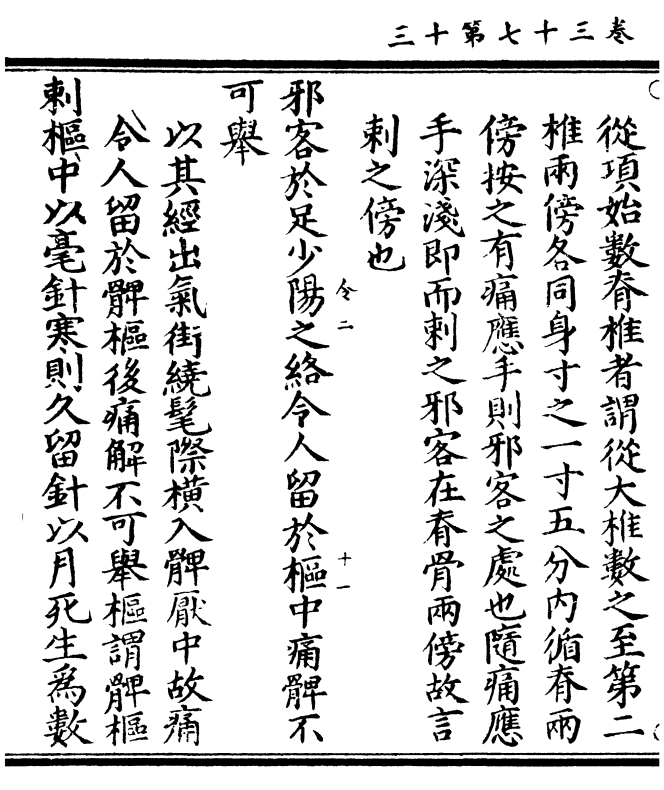 卷三十七第十三
從項始數脊椎者謂從大椎數之至第二
椎兩傍各同身寸之一寸五分內循脊兩
傍按之有痛應手則邪客之處也隨痛應
手深淺即而刺之邪客在脊骨兩傍故言
刺之傍也
令二
十一
邪客於足少陽之絡令人留於樞中痛髀不
可舉
以其經出氣街繞髦際橫入髀厭中故痛
令人留於髀樞後痛解不可舉樞謂髀樞
刺樞中以毫針寒則久留針以月死生為數